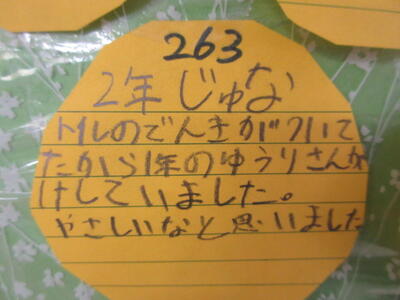 263
2年 じゅな
トイレのでんきがついて
たから1年のゆうりさんが
けしていました。
やさしいなと思いました